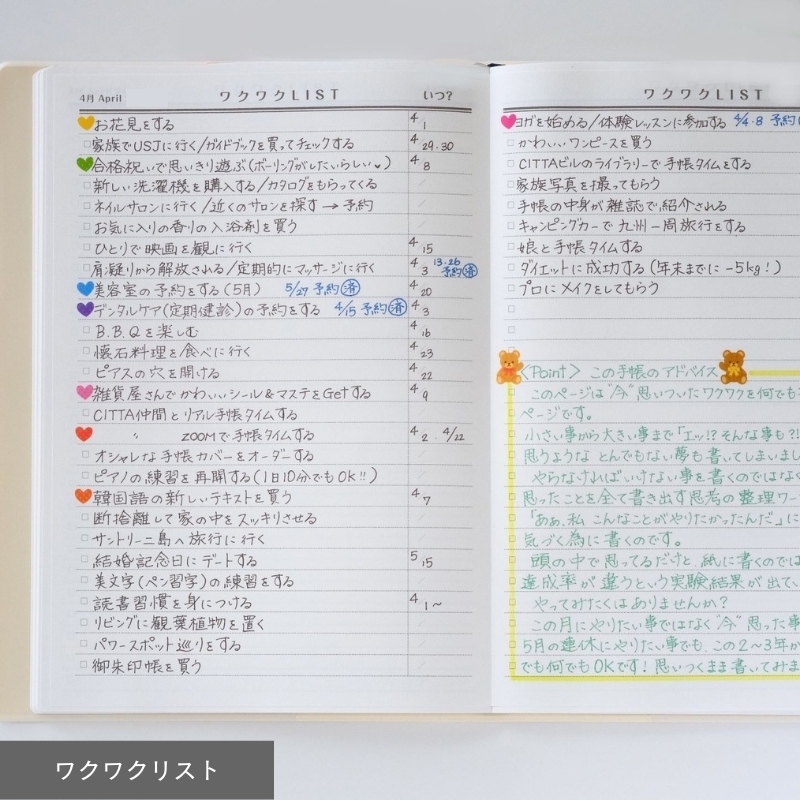 4月 April ワクワクLIST いつ?
お花見をする 4/1
家族でUSJに行く/ガイドブックを買ってチェックする 4/29.30
合格祝いで思いきり遊ぶ(ボーリングがしたいらしい♡) 4/8
新しい洗濯機を購入する/カタログをもらってくる
ネイルサロンに行く/近くのサロンを探す→予約
お気に入りの香りの入浴剤を買う
ひとりで映画を観に行く 4/15
肩凝りから解放される/定期的にマッサージに行く 4/3 13.26 予約済
美容室の予約をする(5月) 5/27 予約済 4/20
デンタルケア(定期健診)の予約をする 4/15 予約済 4/3
B.B.Qを楽しむ 4/16
懐石料理を食べに行く 4/23
ピアスの穴を開ける 4/22
雑貨屋さんでかわいいシール&マステをGetする 4/9
CITTA仲間とリアル手帳タイムする
〃 ZOOMで手帳タイムする 4/2.4/22
オシャレな手帳カバーをオーダーする
ピアノの練習を再開する(1日10分でもOK!!)
韓国語の新しいテキストを買う 4/7
断捨離して家の中をスッキリさせる
サントリーニ島へ旅行に行く
結婚記念日にデートする 5/15
美文字(ペン習字)の練習をする
読書習慣を身につける 4/1~
リビングに観葉植物を置く
パワースポット巡りをする
御朱印帳を買う
ワクワクLIST
ヨガを始める/体験レッスンに参加する 4/4.8 予約
かわいいワンピースを買う
CITTAビルのライブラリーで手帳タイムをする
家族写真を撮ってもらう
手帳の中身が雑誌で紹介される
キャンピングカーで九州一周旅行をする
娘と手帳タイムする
ダイエットに成功する(年末までに-5kg!)
プロにメイクをしてもらう
<Point> この手帳のアドバイス
このページは"今"思いついたワクワクを何でも
ページです。
小さい事から大きい事まで「エッ!?そんな事も?!
思うような とんでもない夢も書いてしまいまし
やらなければいけない事を書くのではなく
思ったことを全て書き出す思考の整理ワー
「あぁ、私こんなことがやりたかったんだ」に
気づく為に書くのです。
頭の中で思ってるだけと、紙に書くのでは
達成率が違うという実験結果が出て、
やってみたくはありませんか?
この月にやりたい事ではなく"今"思った事
5月の連休にやりたい事でも、この2~3年か
でも何でもOKです!思いつくまま書いてみま
ワクワクリスト